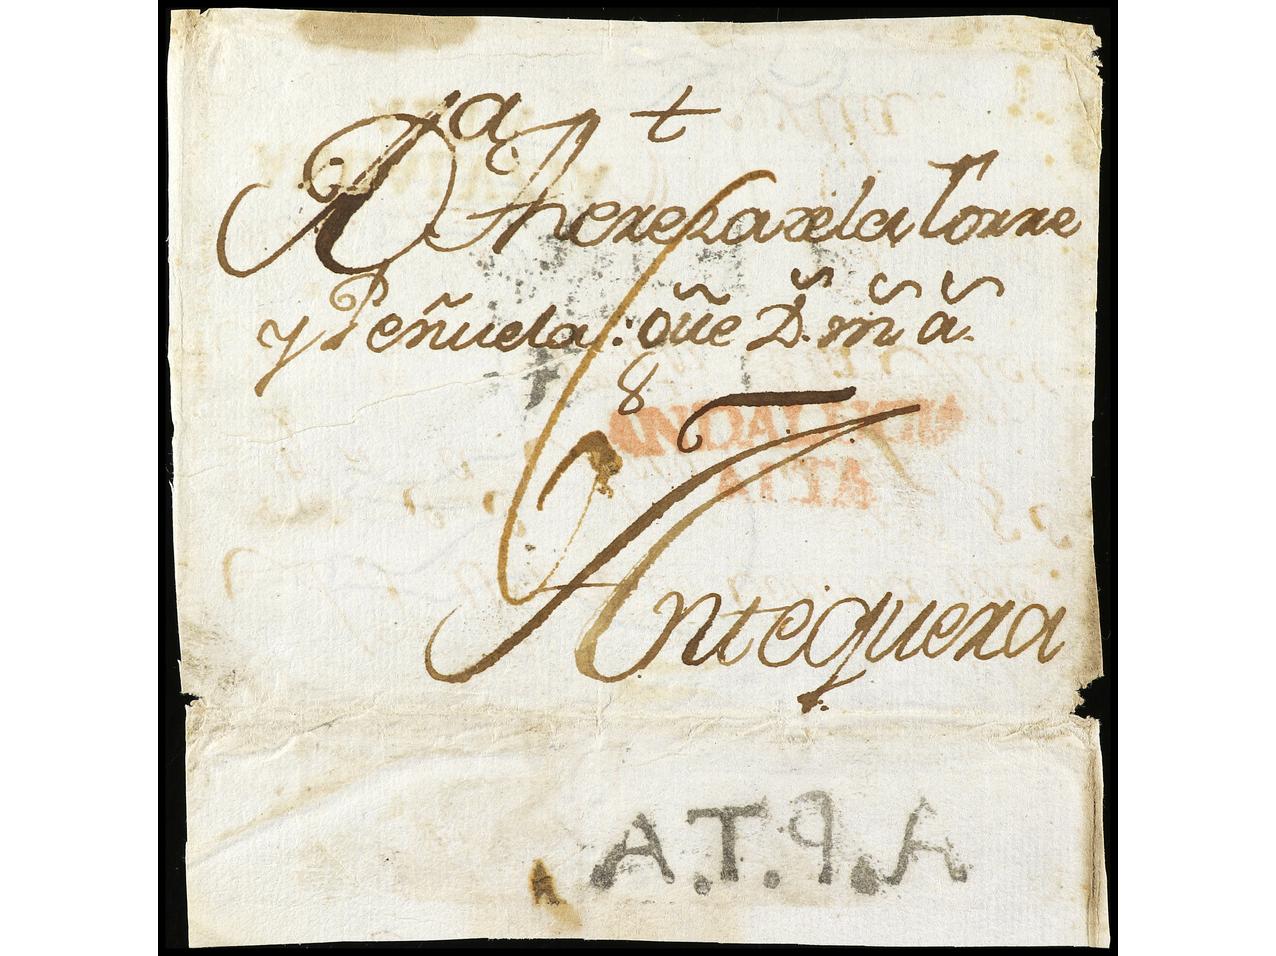 †
Dª Theresa de la Torre
y Peñuela: que D. m. a.
8
ANDALUCIA
ALTA
Antequera
A.P.T.A.